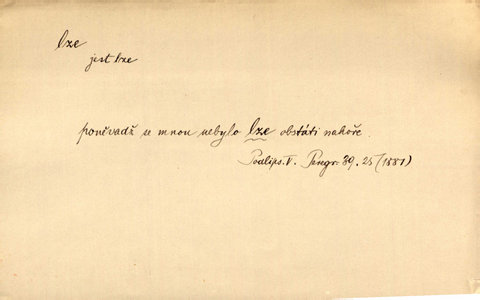 lze
jest lze
poněvadž se mnou nebylo lze obstáti nahoře.
Podlips. V. Peregr. 39. 25 (1881)